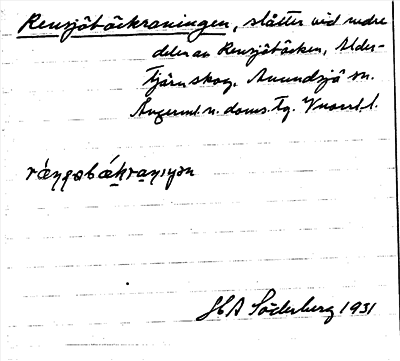 Rensjöbäckraningen, slåtter vid nedre
delen av Rensjöbäcken, Alder-
tjärnskog, Anundsjö sn.
Ångerml. n. doms. tg. Vnorrl. l.
H A Söderberg 1931